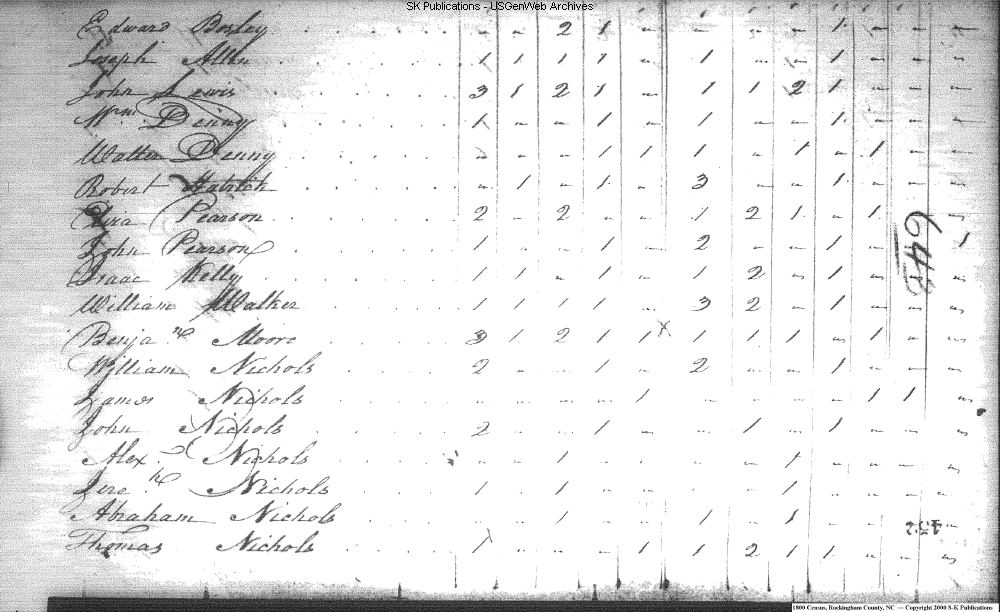 SK Publications - USGenWeb Archives
Edward Bosley " " 2 1 " " " " 1 " " "
Joseph Allen 1 1 1 1 " 1 " " 1 " " "
John Lewis 3 1 2 1 " 1 1 2 1 " " "
Wm. Denny 1 " " 1 " 1 " " 1 " " "
Walter Denny " " " 1 1 1 " 1 " 1 " "
Robert " 1 " 1 " 3 " " 1 " " "
Pearson 2 " 2 " " 1 2 1 " 1 " "
John Pearson 1 " " 1 " 2 " " 1 " " 1
Isaac Kelly 1 1 " 1 " 1 2 " 1 " " "
William Walker 1 1 1 1 " 3 2 " 1 " " "
Benja.n Moore 3 1 2 1 1 x 1 1 1 " 1 " "
William Nichols 2 " " 1 " 2 " " 1 " " "
James Nichols " " " " 1 " " " " 1 1 "
John Nichols 2 " " 1 " " 1 " 1 " " "
Alex.r Nichols " " 1 " " " " 1 " " " "
Jere.h Nichols 1 " 1 " " " " 1 " " " "
Abraham Nichols " " 1 " " 1 " 1 " " "
Thomas Nichols 1 " " " 1 1 2 1 1 " " "
64B
452
1800 Census, Rockingham County, NC — Copyright 2000 S-K Publications